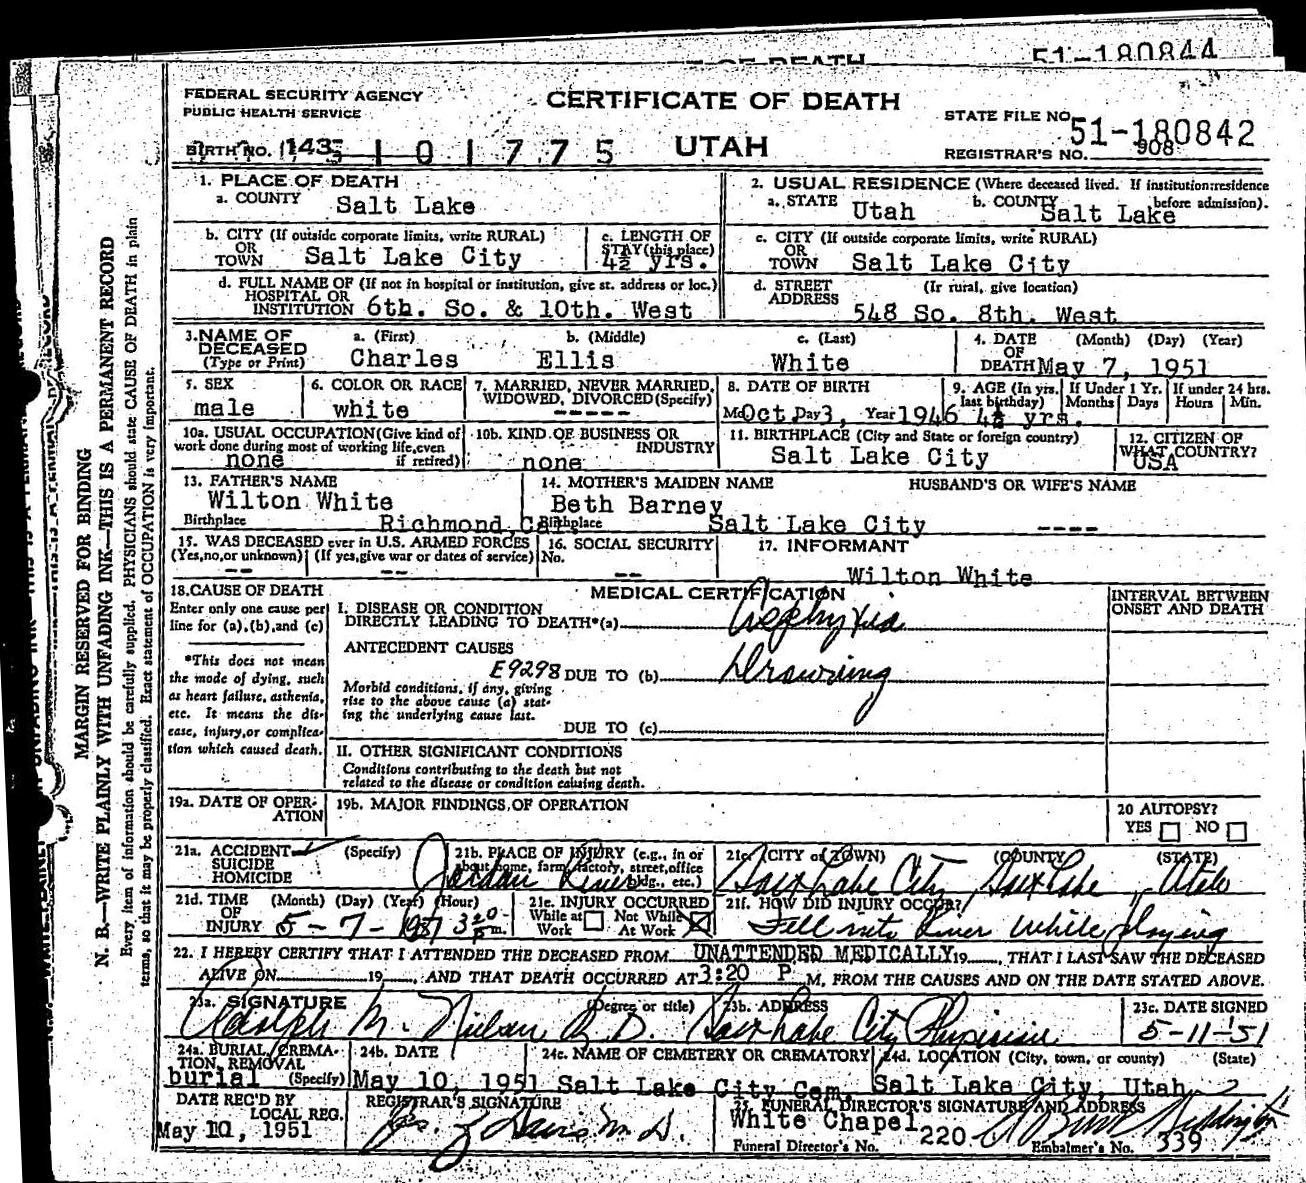 51-180844
FEDERAL SECURITY AGENCY
PUBLIC HEALTH SERVICE
CERTIFICATE OF DEATH
UTAH
STATE FILE NO. 51-180842
REGISTRAR'S NO. 908
BIRTH NO. 143 101775
MARGIN RESERVED FOR BINDING
N. B.—WRITE PLAINLY WITH UNFADING INK—THIS IS A PERMANENT RECORD
Every item of information should be carefully supplied. PHYSICIANS should state CAUSE OF DEATH in plain
terms, so that it may be properly classified. Exact statement of OCCUPATION is very important.
1. PLACE OF DEATH
a. COUNTY Salt Lake
2. USUAL RESIDENCE (Where deceased lived. If institution: residence before admission).
a. STATE Utah b. COUNTY Salt Lake
b. CITY (If outside corporate limits, write RURAL) OR TOWN Salt Lake City
c. LENGTH OF STAY (this place) 4½ yrs.
c. CITY (If outside corporate limits, write RURAL) OR TOWN Salt Lake City
d. FULL NAME OF (If not in hospital or institution, give st. address or loc.) HOSPITAL OR INSTITUTION 6th. So. & 10th. West
d. STREET ADDRESS (If rural, give location) 548 So. 8th. West
3. NAME OF DECEASED (Type or Print) a. (First) Charles b. (Middle) Ellis c. (Last) White
4. DATE OF DEATH (Month) (Day) (Year) May 7, 1951
5. SEX male
6. COLOR OR RACE white
7. MARRIED, NEVER MARRIED, WIDOWED, DIVORCED (Specify) -----
8. DATE OF BIRTH Mo Oct. Day 3, Year 1946
9. AGE (In yrs. last birthday) 4½ yrs. If Under 1 Yr. Months Days If under 24 hrs. Hours Min.
10a. USUAL OCCUPATION (Give kind of work done during most of working life, even if retired) none
10b. KIND OF BUSINESS OR INDUSTRY none
11. BIRTHPLACE (City and State or foreign country) Salt Lake City
12. CITIZEN OF WHAT COUNTRY? USA
13. FATHER'S NAME Wilton White
Birthplace Richmond, Cal.
14. MOTHER'S MAIDEN NAME Beth Barney
Birthplace Salt Lake City
HUSBAND'S OR WIFE'S NAME ----
15. WAS DECEASED ever in U.S. ARMED FORCES (Yes, no, or unknown) (If yes, give war or dates of service) -- --
16. SOCIAL SECURITY No. --
17. INFORMANT Wilton White
18. CAUSE OF DEATH
Enter only one cause per line for (a), (b), and (c)
*This does not mean the mode of dying, such as heart failure, asthenia, etc. It means the disease, injury, or complication which caused death.
MEDICAL CERTIFICATION
INTERVAL BETWEEN ONSET AND DEATH
I. DISEASE OR CONDITION DIRECTLY LEADING TO DEATH*(a) Asphyxia
ANTECEDENT CAUSES
E9298 DUE TO (b) Drowning
Morbid conditions, if any, giving rise to the above cause (a) stating the underlying cause last.
DUE TO (c)
II. OTHER SIGNIFICANT CONDITIONS
Conditions contributing to the death but not related to the disease or condition causing death.
19a. DATE OF OPERATION
19b. MAJOR FINDINGS OF OPERATION
20 AUTOPSY? YES NO
21a. ACCIDENT SUICIDE HOMICIDE (Specify)
21b. PLACE OF INJURY (e.g., in or about home, farm, factory, street, office bldg., etc.) Jordan River
21c. (CITY or TOWN) (COUNTY) (STATE) Salt Lake City Salt Lake Utah
21d. TIME OF INJURY (Month) (Day) (Year) (Hour) 5-7-1951 3 20 P m.
21e. INJURY OCCURRED While at Work Not While At Work
21f. HOW DID INJURY OCCUR? Fell into River While playing
22. I HEREBY CERTIFY THAT I ATTENDED THE DECEASED FROM UNATTENDED MEDICALLY 19 , THAT I LAST SAW THE DECEASED
ALIVE ON 19 , AND THAT DEATH OCCURRED AT 3:20 P M, FROM THE CAUSES AND ON THE DATE STATED ABOVE.
23a. SIGNATURE (Degree or title) Adolph M. Nielsen M.D.
23b. ADDRESS Salt Lake City Physician
23c. DATE SIGNED 5-11-51
24a. BURIAL, CREMATION, REMOVAL (Specify) burial
24b. DATE May 10, 1951
24c. NAME OF CEMETERY OR CREMATORY Salt Lake City Cem.
24d. LOCATION (City, town, or county) (State) Salt Lake City, Utah
DATE REC'D BY LOCAL REG. May 10, 1951
REGISTRAR'S SIGNATURE
25. FUNERAL DIRECTOR'S SIGNATURE AND ADDRESS White Chapel
Funeral Director's No. 220 Embalmer's No. 339